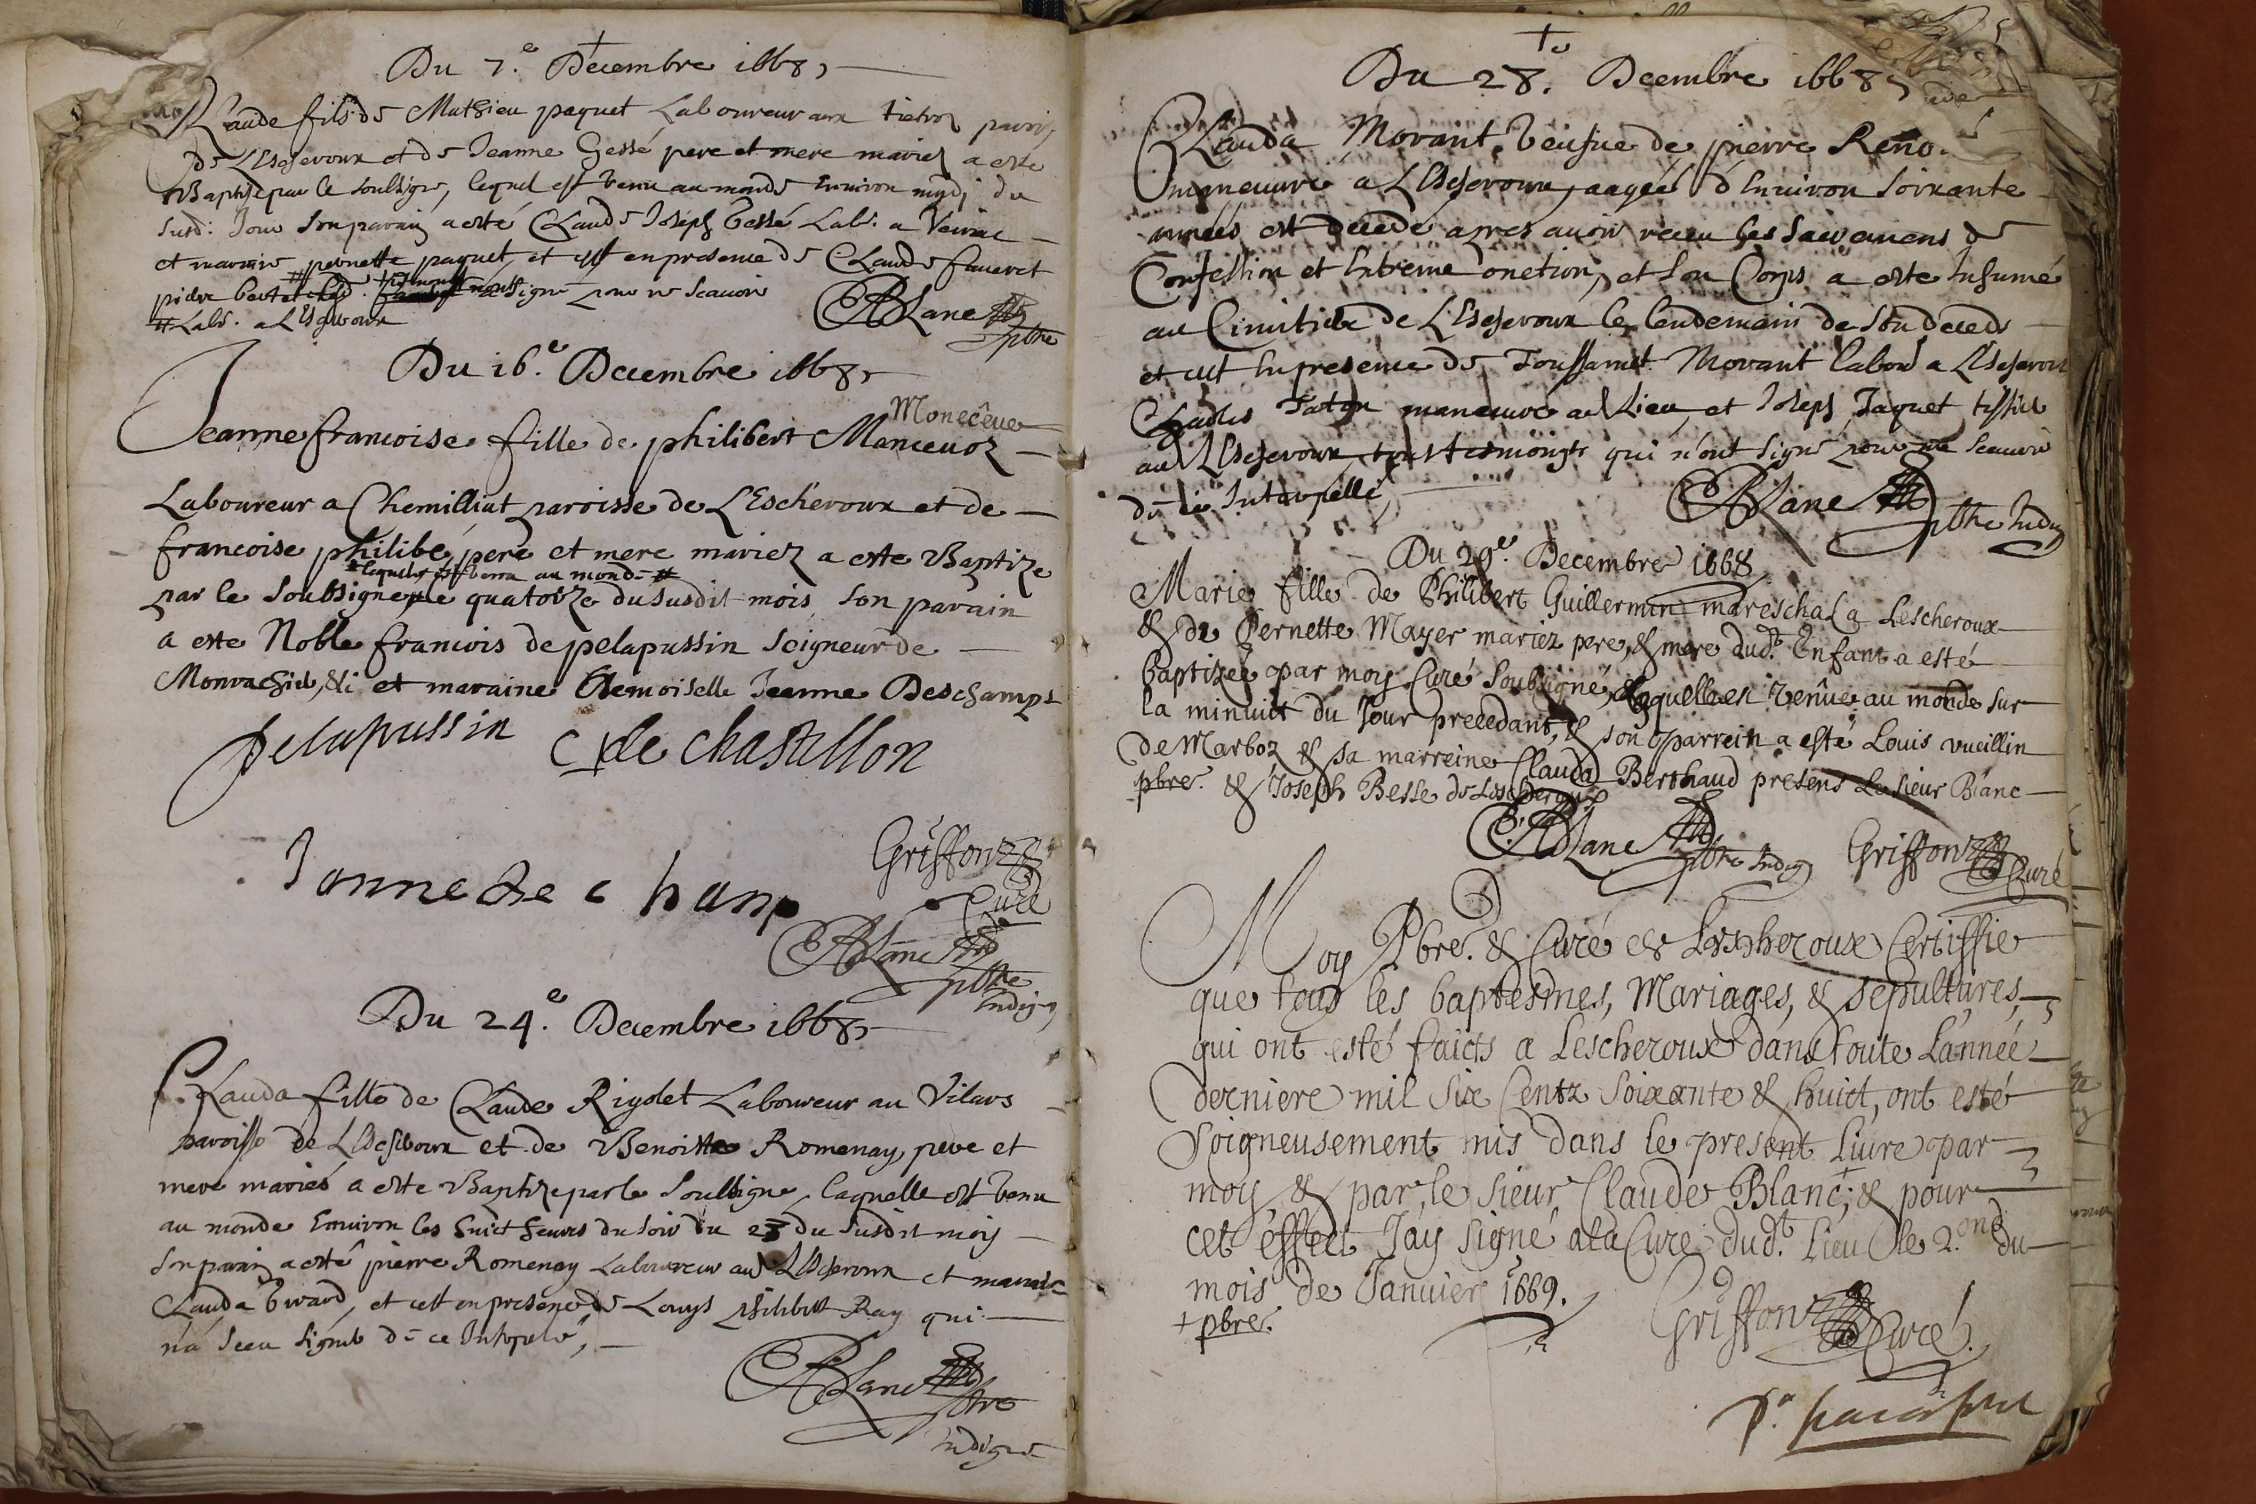 Du 7.e Decembre 1668,
Claude fils de Mathieu paquet Laboureur aux paroisse
de LEscheroux et de Jeanne Gessé pere et mere mariez a esté
Baptisé par le soubsigné, lequel est venu au monde Environ midj du
susd. Jour son parain a esté Claude Joseph bessé Lab.r a
et maraine pernette paquet et cest en presence de Claude faueret
pierre signé pour ne scauoir
# Lab.r a LEscheroux
Blanc pbre
Du 16.e Decembre 1668,
Moneceue
Jeanne francoise fille de philibert Manceuoz
Laboureur a Chemilliat paroisse de L'Escheroux et de
francoise philibé, pere et mere mariez a este Baptize
lequel est venu au monde #
par le soubsigné le quatorze dususdit mois, son parain
a este Noble francois de pelapussin seigneur de
Monrachiel, &c et maraine demoiselle Jeanne Deschamps
pelapussin C de chastillon
Janne de champ
Griffon Curé
Blanc pbre
Indign
Du 24.e Decembre 1668,
Clauda fille de Claude Rigolet Laboureur au Vilars
paroisse de LEscheroux et de Benoitte Romenay pere et
mere mariés a este Baptize par le soubsigné, laquelle est venu
au monde Enuiron les huict heures du soir du 23 du susdit mois
son parain a esté pierre Romenay Laboureur aud LEscheroux et maraine
Clauda birard, et cest en presence de Louys philibert Ray qui
n'a sceu signé de ce Interpelé,
Blanc pbre
Indigne
Du 28.e Decembre 1668,
Clauda Morant, veufue de pierre Reno
manouure a LEscheroux, aagée d'Enuiron soixante
années est decedé apres auoir receu les sacremens de
Confession et Extreme onction, et son Corps a este Inhumé
au Cimitiere de L'Escheroux le lendemain de son deceds
et cest En presence de Toussainct Morant labour a LEscheroux
Charles Taton manouure aud Lieu, et Joseph Jaquet tissier
aud LEscheroux, tous tesmoingts qui n'ont signé pour ne scauoir
de ce Interpellé,
Blanc pbre Indig
Du 29e. Decembre 1668
Marie fille de Philibert Guillermin mareschal a Lescheroux
& de Pernette Mayer mariez pere, & mere dud.t Enfant a esté
baptizée par moy Curé soubsigné, laquelle est venüe au monde sur
la minuict du Jour precedant, & son parrein a esté Louis vueillin
de Marboz & sa marreine Clauda Berthaud presens le sieur Blanc
pbre. & Joseph Besse de Lescheroux
Blanc pbre Indig Griffon Curé
Moy Pbre. & Curé de Lescheroux Certiffie
que tous les baptesmes, Mariages, & sepultures,
qui ont esté faicts a Lescheroux dans toute l'année
derniere mil six Centz soixante & huict, ont esté
soigneusement mis dans le present liure par
moy, & par le sieur Claude Blanc +; & pour
cet éffect J'ay signé a la Cure dud.t Lieu le 2.ond du
mois de Januier 1669.
+ pbre.
Griffon Curé.